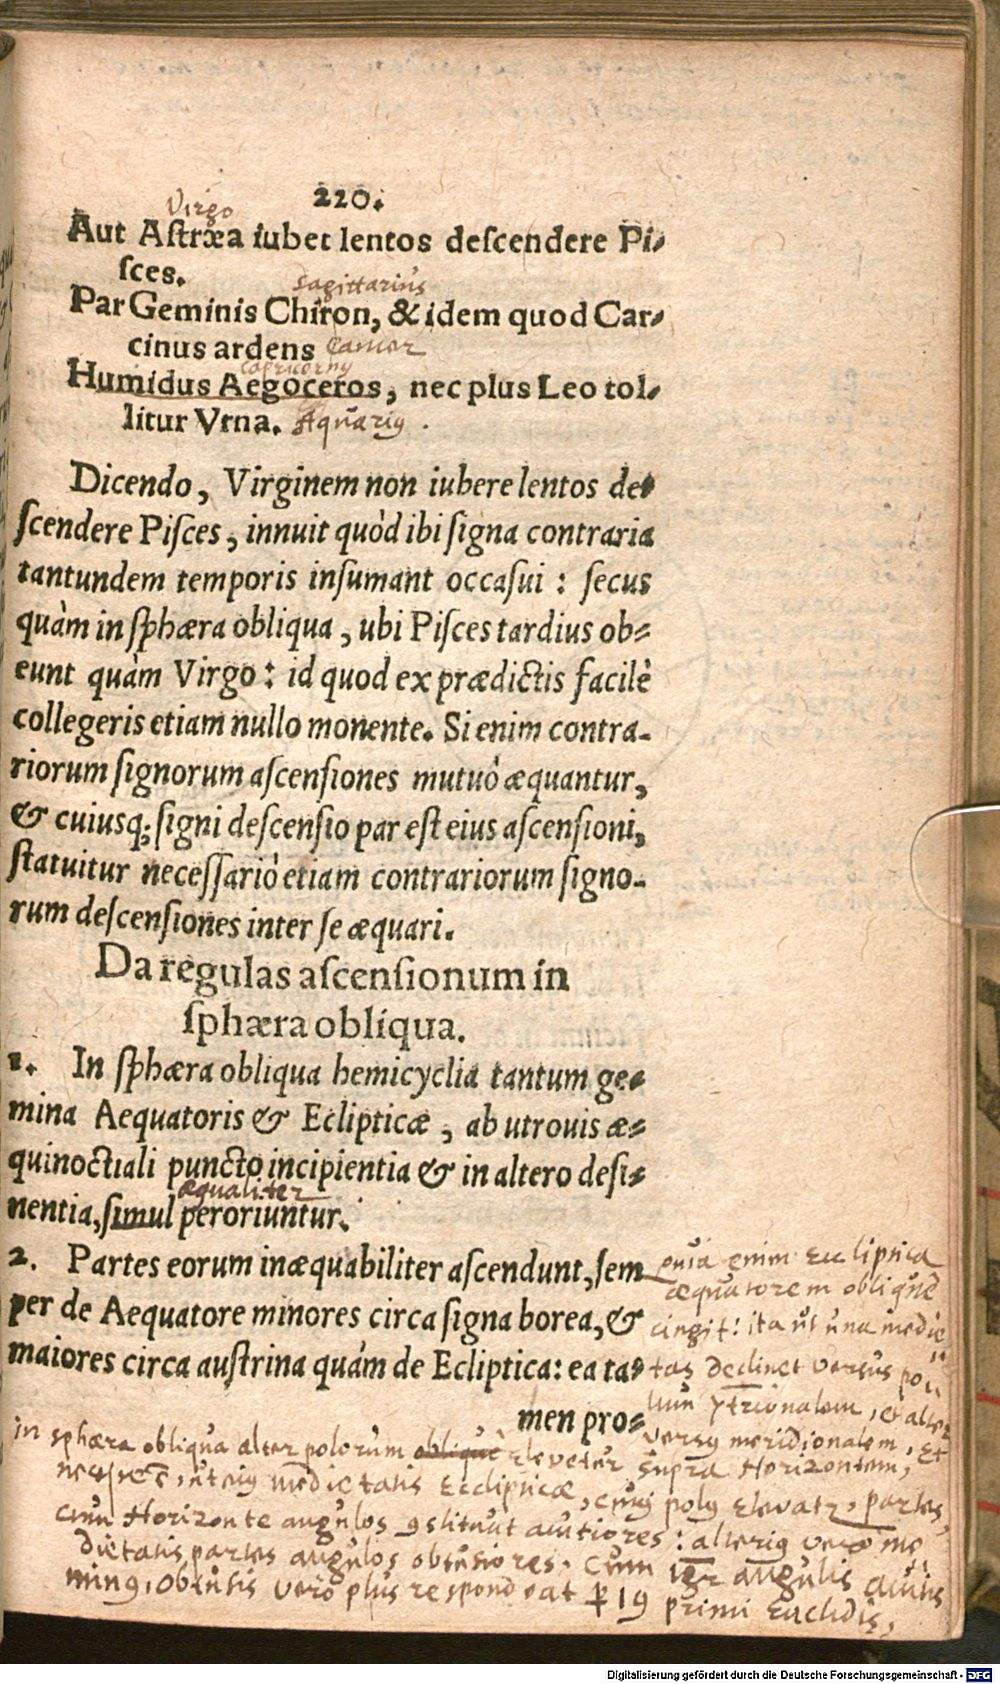 220.
Virgo
Aut Astræa iubet lentos descendere Pi-
sces.
Sagittarius
Par Geminis Chiron, & idem quod Car-
cinus ardens Cancer
Capricorny
Humidus Aegoceros, nec plus Leo tol-
litur Vrna. Aquariy.
Dicendo, Virginem non iubere lentos de-
scendere Pisces, innuit quòd ibi signa contraria
tantundem temporis insumant occasui: secus
quàm in sphæra obliqua, ubi Pisces tardius ob-
eunt quàm Virgo: id quod ex prædictis facilè
collegeris etiam nullo monente. Si enim contra-
riorum signorum ascensiones mutuò æquantur,
& cuiusq; signi descensio par est eius ascensioni,
statuitur necessariò etiam contrariorum signo-
rum descensiones inter se æquari.
Da regulas ascensionum in
sphæra obliqua.
1. In sphæra obliqua hemicyclia tantum ge-
mina Aequatoris & Eclipticæ, ab utrouis æ-
quinoctiali puncto incipientia & in altero desi-
æqualiter
nentia, simul peroriuntur.
2. Partes eorum inæquabiliter ascendunt, sem
per de Aequatore minores circa signa borea, &
maiores circa austrina quám de Ecliptica: ea ta-
men pro-
quia enim Ecliptica
æquatorem obliquè
cingit: ita ut una medie
tas declinet versus po
lum 7trionalem, et altera
versq meridionalem, Et
in sphæra obliqua alter polorum obliquè elevetur supra Horizontem,
necesse e, ut eiq medietatis Eclipticæ, cuiq polq elevatr, partes
cum Horizonte angulos 9stituut acutiores: alteriq vero me
dietatis partes angulos obtusiores. Cum igr angulis acutis
minq, obtusis vero plus respondeat p 19 primi Euclidis,
Digitalisierung gefördert durch die Deutsche Forschungsgemeinschaft - DFG